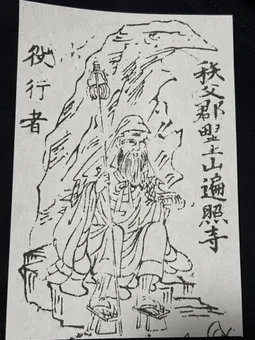 秩父郡野上山遍照寺
役行者